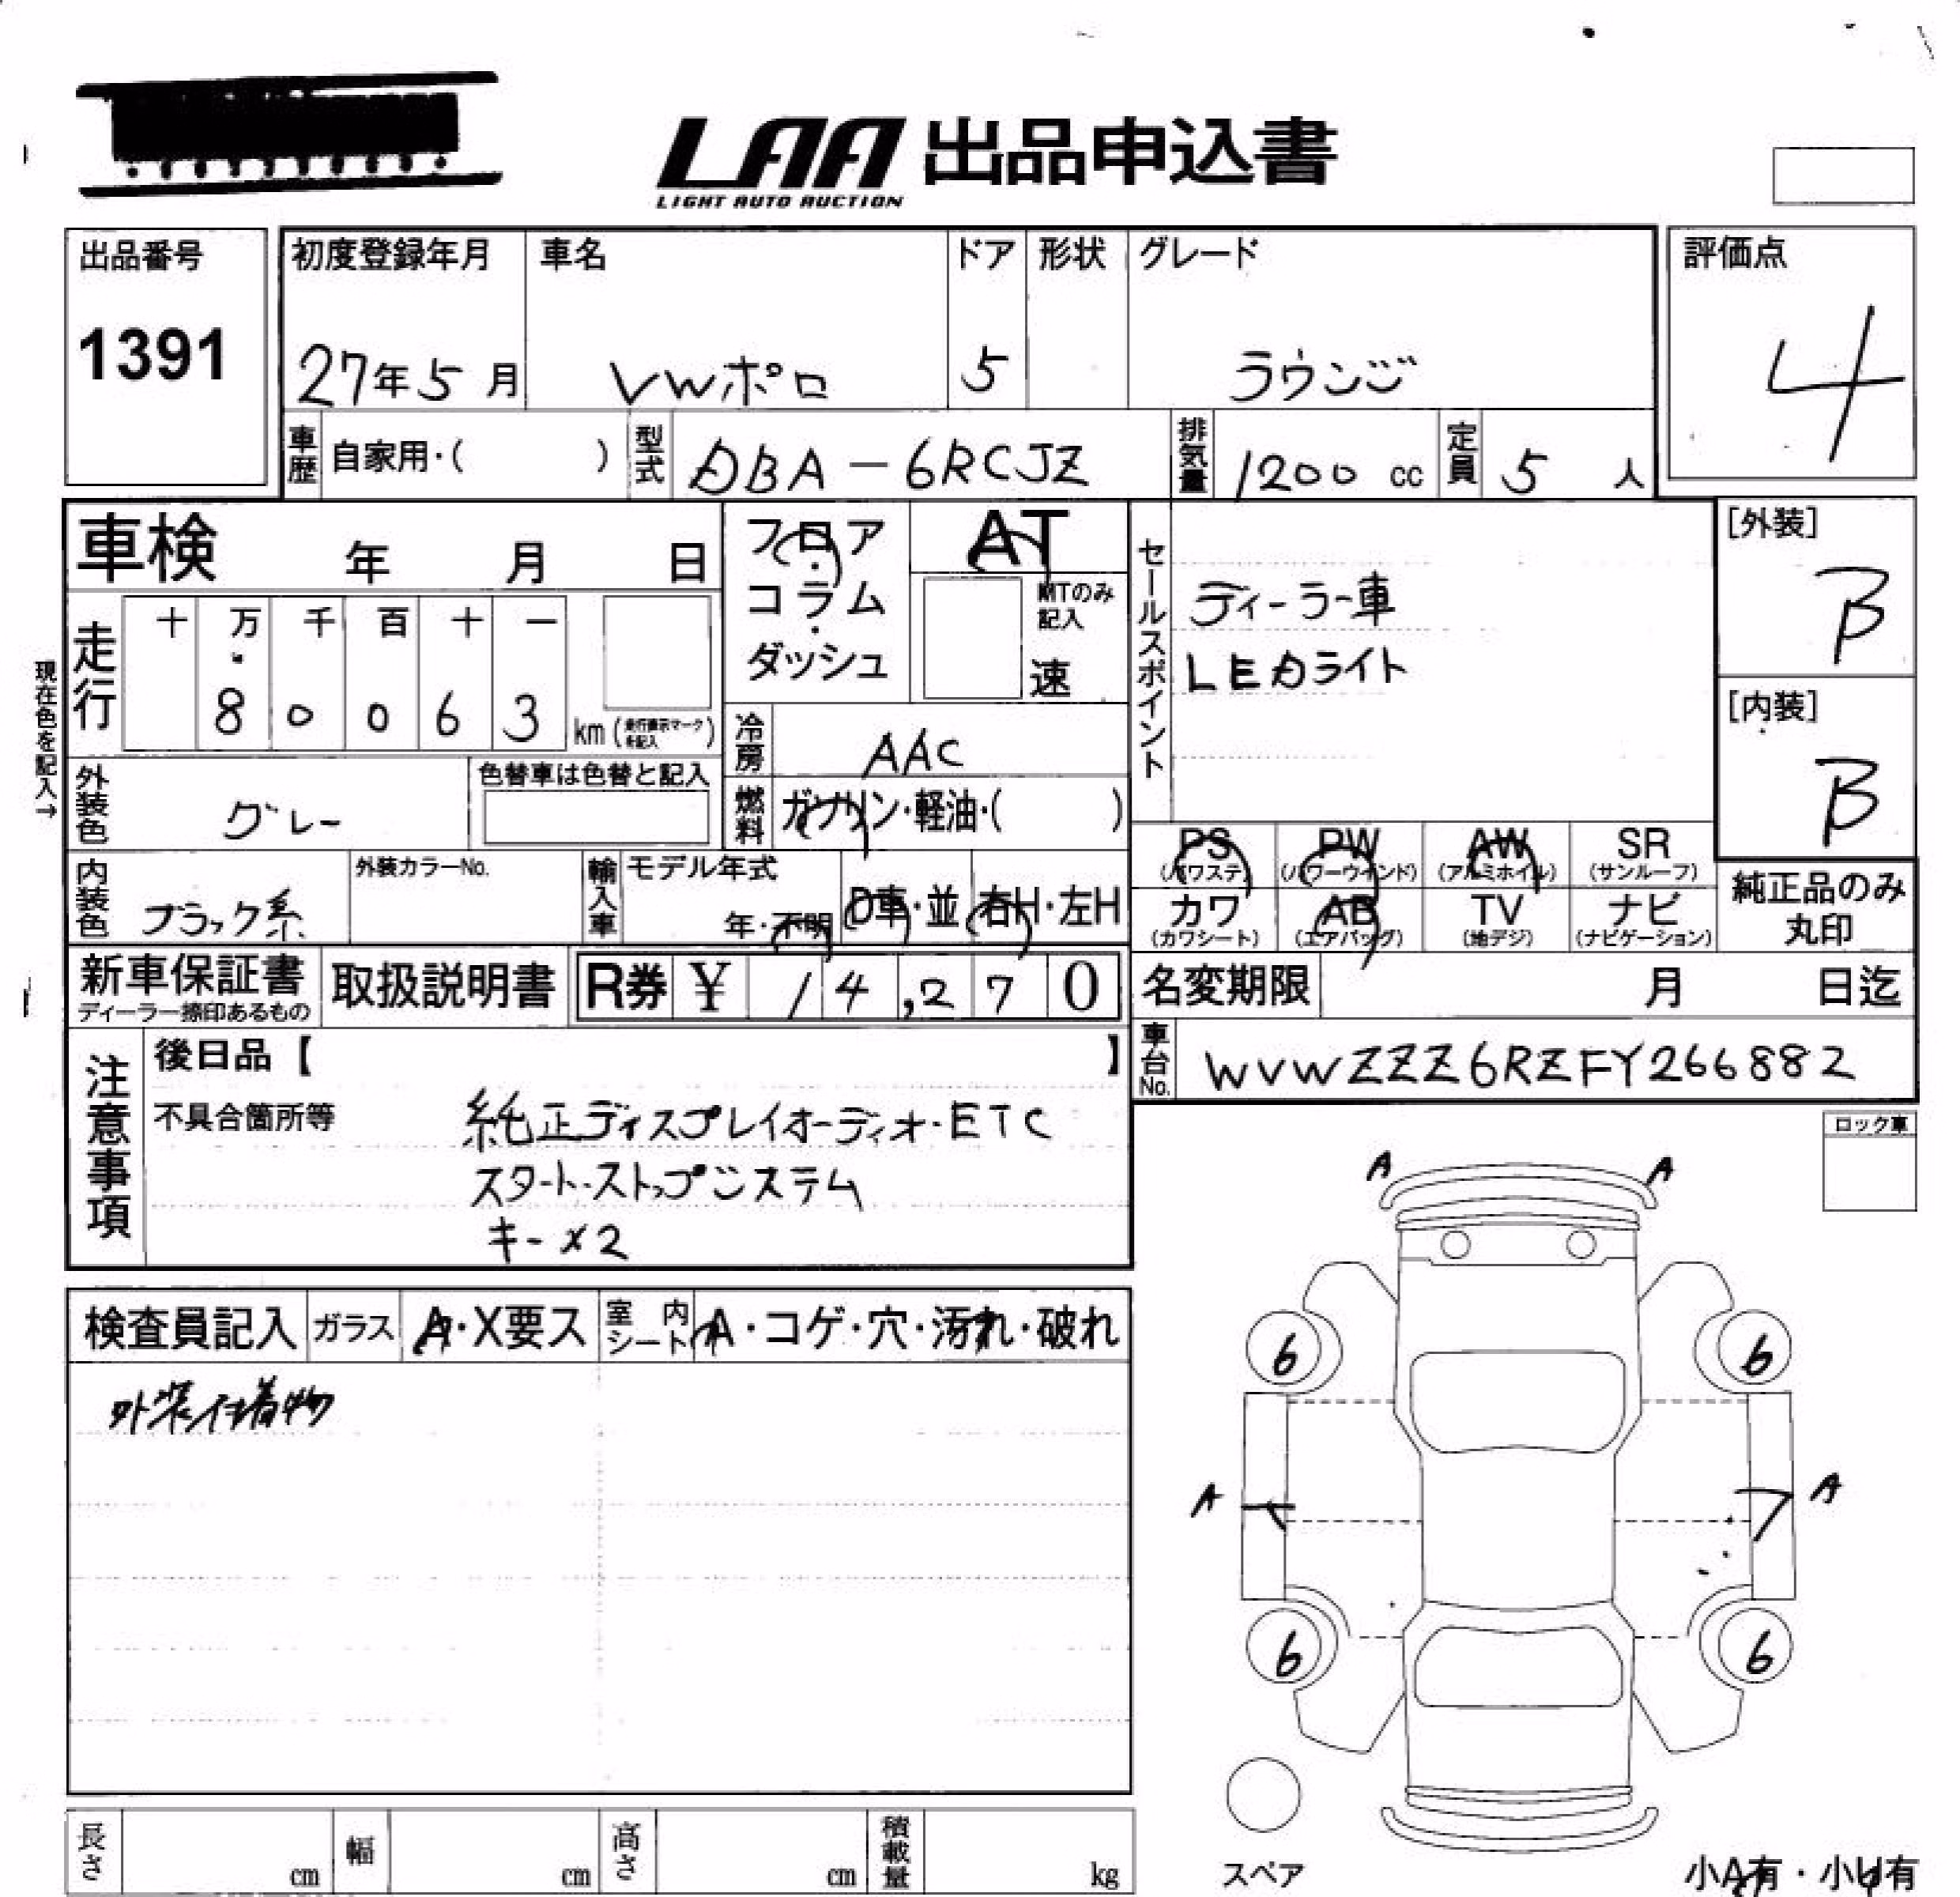 LAA 出品申込書
LIGHT AUTO AUCTION
出品番号
1391
初度登録年月 車名 ドア 形状 グレード
27年5月 VWポロ 5 ラウンジ
評価点
4
車歴 自家用・( ) 型式 DBA-6RCJZ 排気量 1200 cc 定員 5 人
車検 年 月 日
フロア・コラム・ダッシュ
AT
MTのみ記入
速
現在色を記入→
走行 十 万 千 百 十 一
8 0 0 6 3 km (走行表示マークを記入)
冷房 AAC
燃料 ガソリン・軽油・( )
外装色 グレー 色替車は色替と記入
内装色 ブラック系 外装カラーNo.
輸入車 モデル年式 年・不明 D車・並 右H・左H
セールスポイント
ディーラー車
LEDライト
[外装]
B
[内装]
B
PS (パワステ) PW (パワーウインド) AW (アルミホイル) SR (サンルーフ)
カワ (カワシート) AB (エアバッグ) TV (地デジ) ナビ (ナビゲーション)
純正品のみ丸印
新車保証書 ディーラー捺印あるもの 取扱説明書 R券 ¥ 14,270
名変期限 月 日迄
車台No. WVWZZZ6RZFY266882
注意事項
後日品【 】
不具合箇所等
純正ディスプレイオーディオ・ETC
スタート・ストップシステム
キー×2
ロック車
検査員記入 ガラス A・X要ス 室内シート A・コゲ・穴・汚れ・破れ
外装付着物
A A
6 6
A A
6 6
スペア
小A有・小U有
長さ cm 幅 cm 高さ cm 積載量 kg